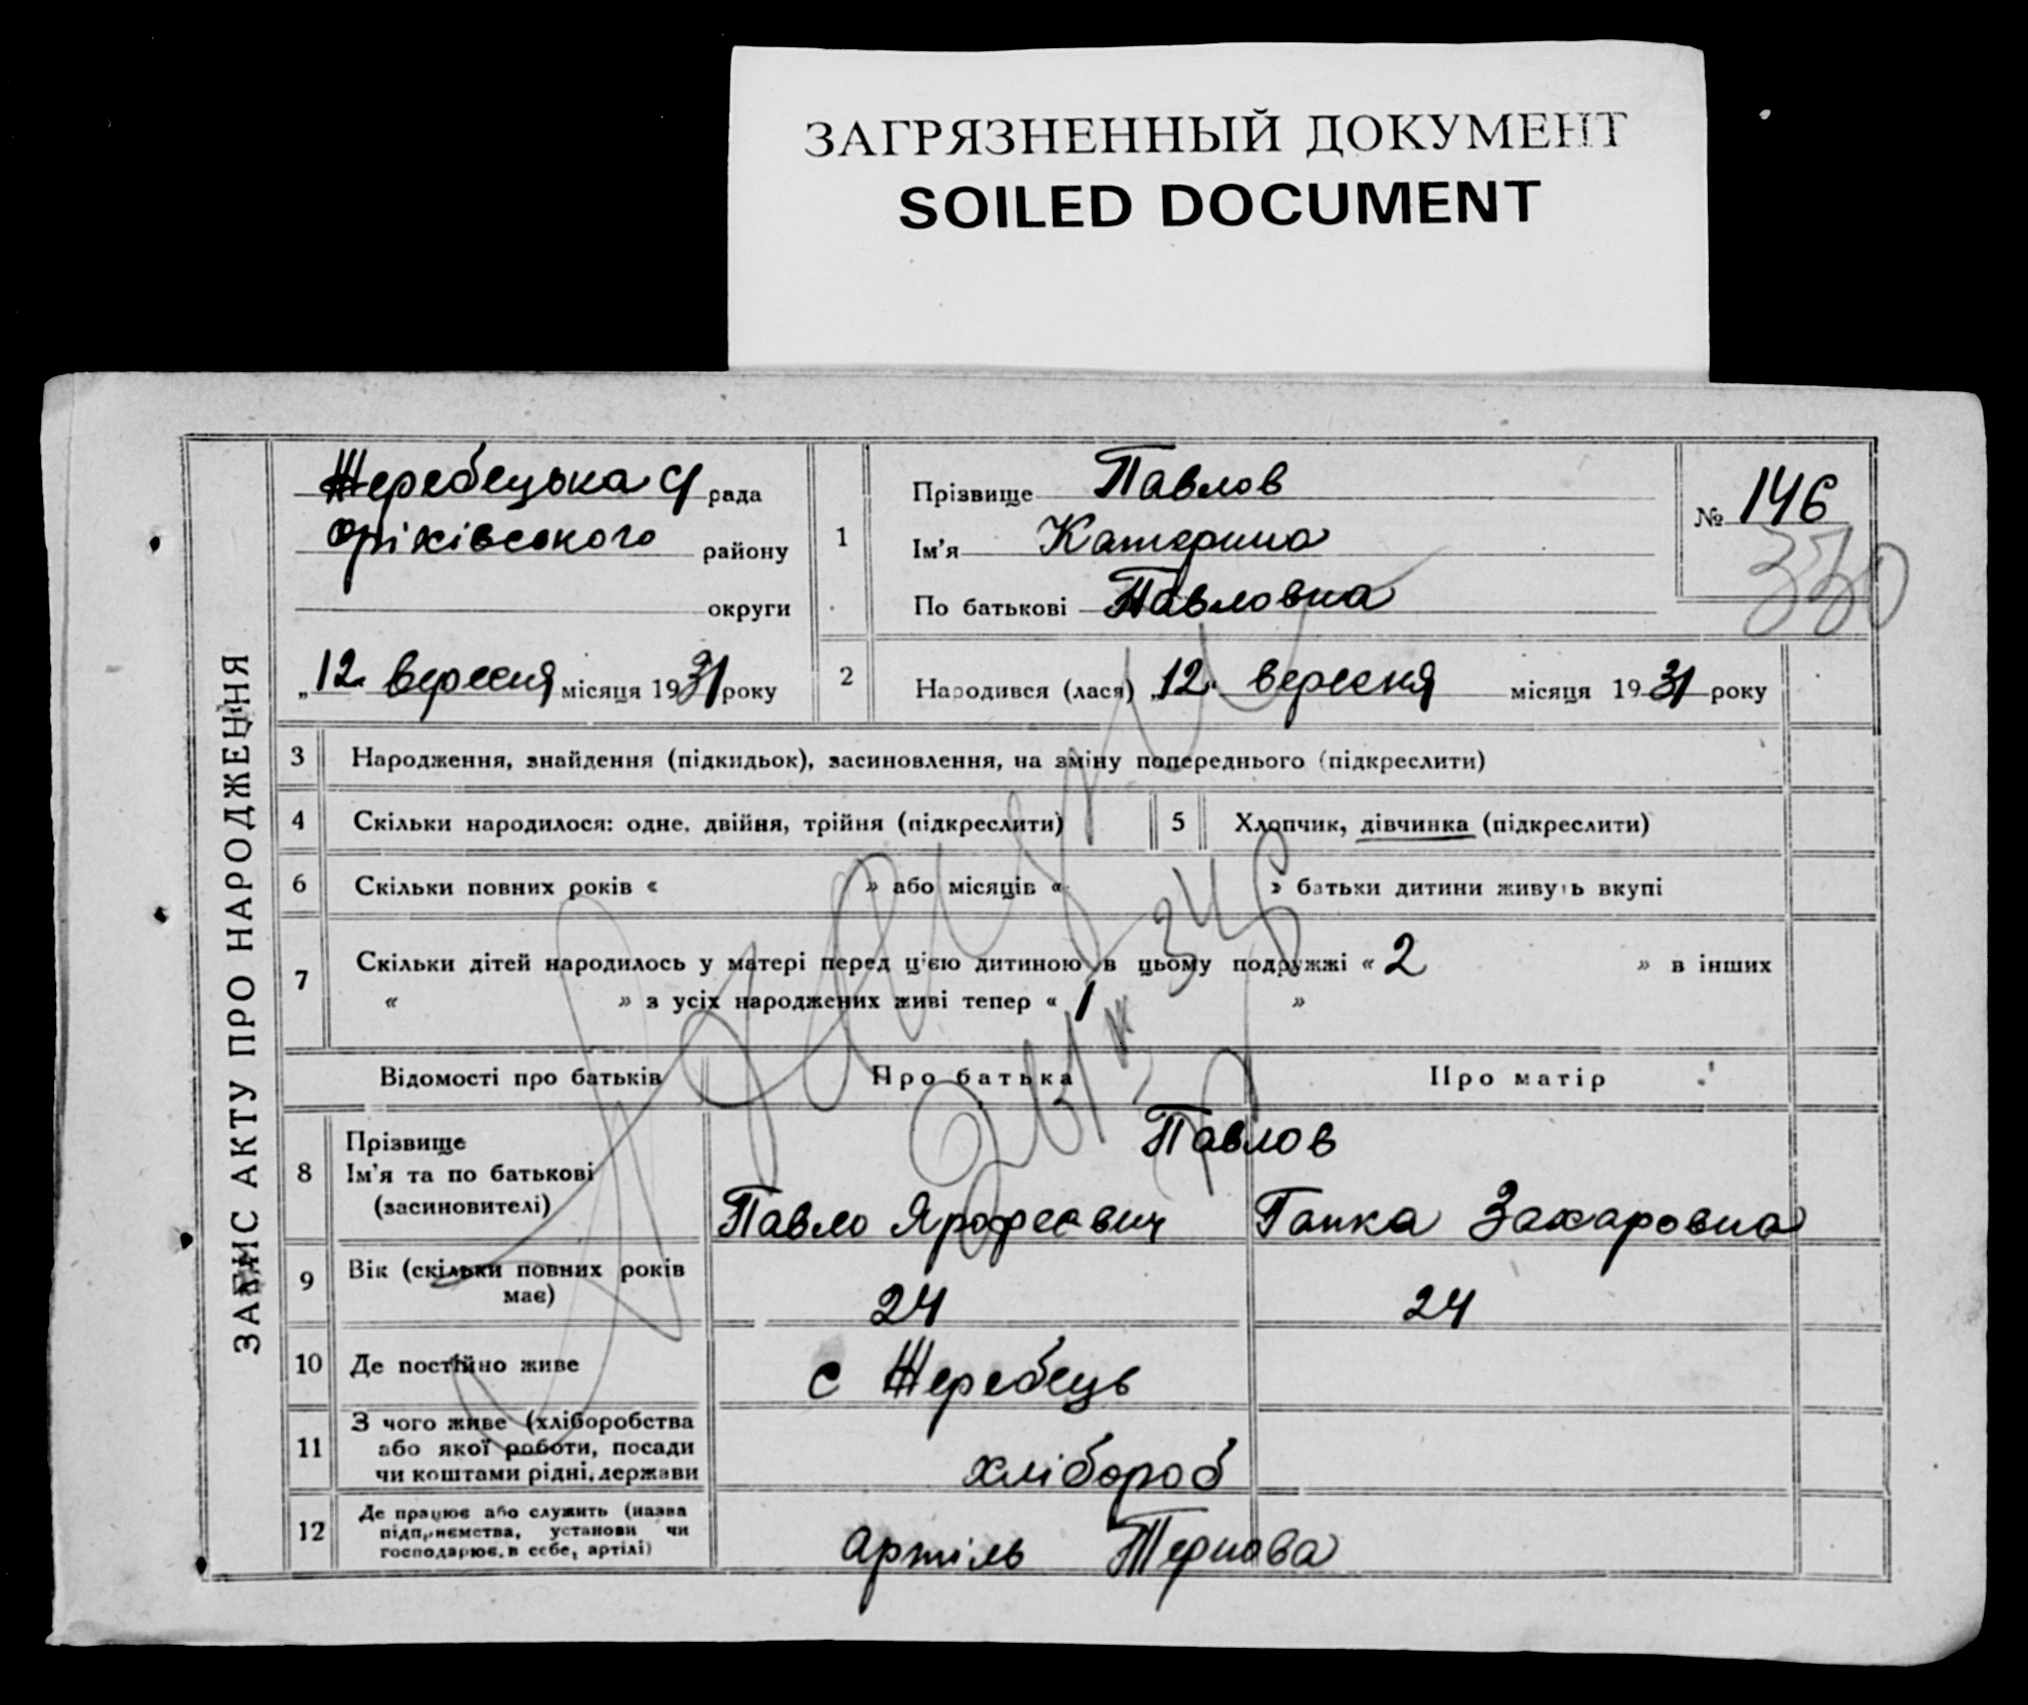 ЗАГРЯЗНЕННЫЙ ДОКУМЕНТ
SOILED DOCUMENT
ЗАПИС АКТУ ПРО НАРОДЖЕННЯ
Жеребецька с/ рада
Оріхівського району
округи
„12“ вересня місяця 1931 року
1
Прізвище Павлов
Ім'я Катерина
По батькові Павловна
№ 146
330
2
Народився (лася) „12“ вересня місяця 1931 року
3 Народження, знайдення (підкидьок), засиновлення, на зміну попереднього (підкреслити)
4 Скільки народилося: одне, двійня, трійня (підкреслити)
5 Хлопчик, дівчинка (підкреслити)
6 Скільки повних років « » або місяців « » батьки дитини живуть вкупі
7 Скільки дітей народилось у матері перед ц'єю дитиною в цьому подружжі « 2 » в інших
« » з усіх народжених живі тепер « 1 »
Відомості про батьків Про батька Про матір
8 Прізвище
Ім'я та по батькові
(засиновителі)
Павлов
Павло Ярофеевич Ганка Захаровна
9 Вік (скільки повних років
має)
24 24
10 Де постійно живе с Жеребець
11 З чого живе (хліборобства
або якої роботи, посади
чи коштами рідні, держави
хлібороб
12 Де працює або служить (назва
підприємства, установи чи
господарює, в себе, артілі)
артіль Тернова